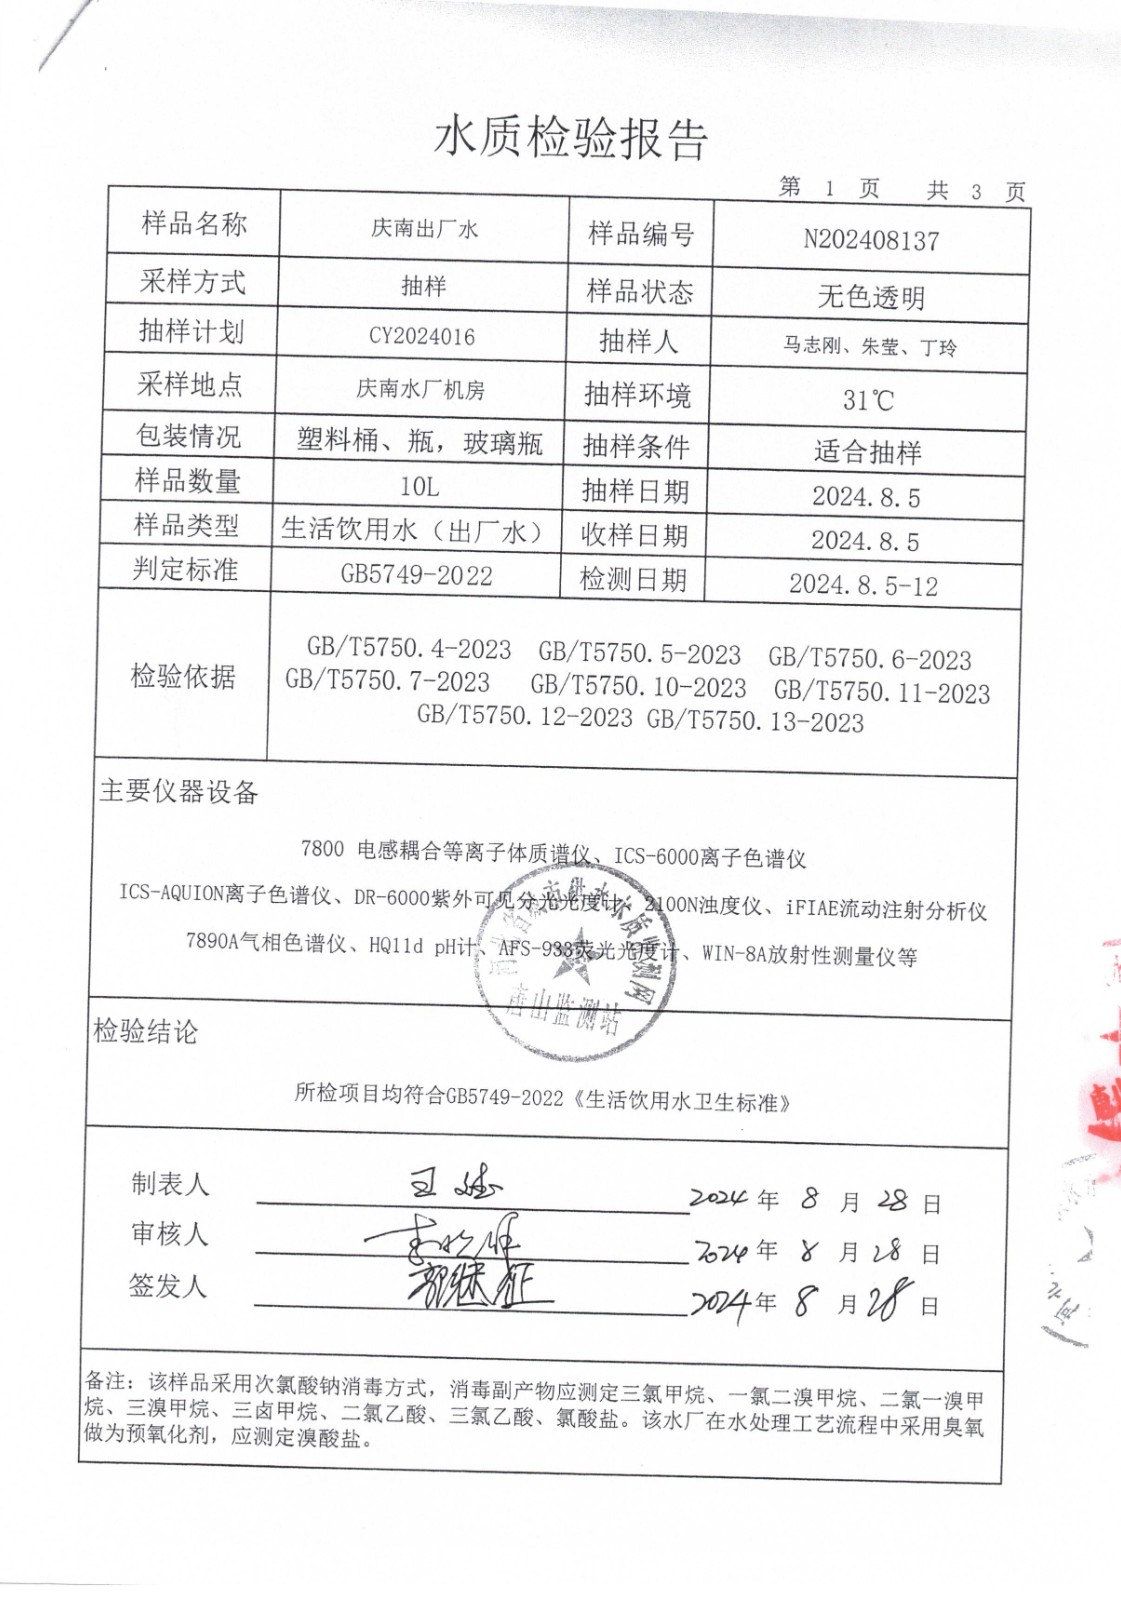 水质检验报告
第 1 页 共 3 页
样品名称 庆南出厂水 样品编号 N202408137
采样方式 抽样 样品状态 无色透明
抽样计划 CY2024016 抽样人 马志刚、朱莹、丁玲
采样地点 庆南水厂机房 抽样环境 31℃
包装情况 塑料桶、瓶，玻璃瓶 抽样条件 适合抽样
样品数量 10L 抽样日期 2024.8.5
样品类型 生活饮用水（出厂水） 收样日期 2024.8.5
判定标准 GB5749-2022 检测日期 2024.8.5-12
GB/T5750.4-2023 GB/T5750.5-2023 GB/T5750.6-2023
检验依据 GB/T5750.7-2023 GB/T5750.10-2023 GB/T5750.11-2023
GB/T5750.12-2023 GB/T5750.13-2023
主要仪器设备
7800 电感耦合等离子体质谱仪、ICS-6000离子色谱仪
ICS-AQUION离子色谱仪、DR-6000紫外可见分光光度计、2100N浊度仪、iFIAE流动注射分析仪
7890A气相色谱仪、HQ11d pH计、AFS-933荧光光度计、WIN-8A放射性测量仪等
唐山监测站
检验结论
所检项目均符合GB5749-2022《生活饮用水卫生标准》
制表人 2024 年 8 月 28 日
审核人 2024 年 8 月 28 日
签发人 2024 年 8 月 28 日
备注：该样品采用次氯酸钠消毒方式，消毒副产物应测定三氯甲烷、一氯二溴甲烷、二氯一溴甲
烷、三溴甲烷、三卤甲烷、二氯乙酸、三氯乙酸、氯酸盐。该水厂在水处理工艺流程中采用臭氧
做为预氧化剂，应测定溴酸盐。